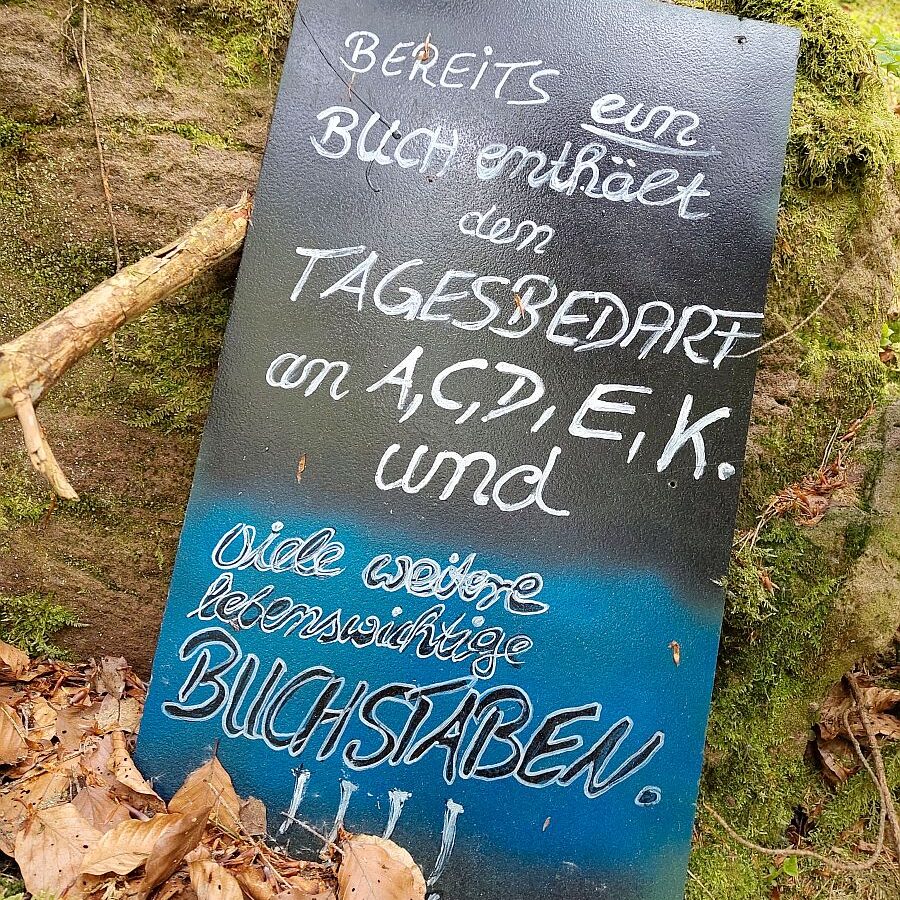 BEREITS ein
BUCH enthält
den
TAGESBEDARF
an A, C, D, E, K.
und
viele weitere
lebenswichtige
BUCHSTABEN.
!!!!